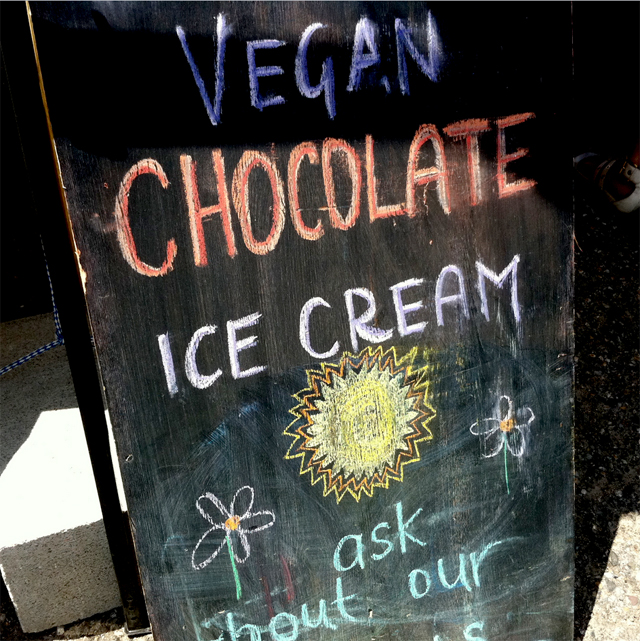 VEGAN
CHOCOLATE
ICE CREAM
ask
about our